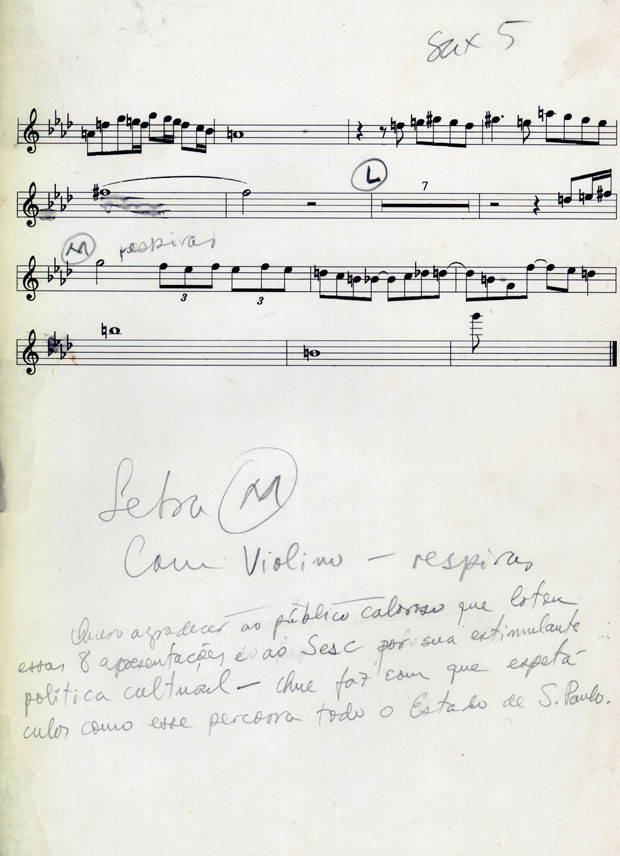 Sax 5
L
7
M respirar
3 3
Letra M
Com Violino – respirar
Quero agradecer ao público caloroso que lotou
essas 8 apresentações e ao Sesc por sua estimulante
política cultural – Que faz com que espetá
culos como esse percorra todo o Estado de S. Paulo.